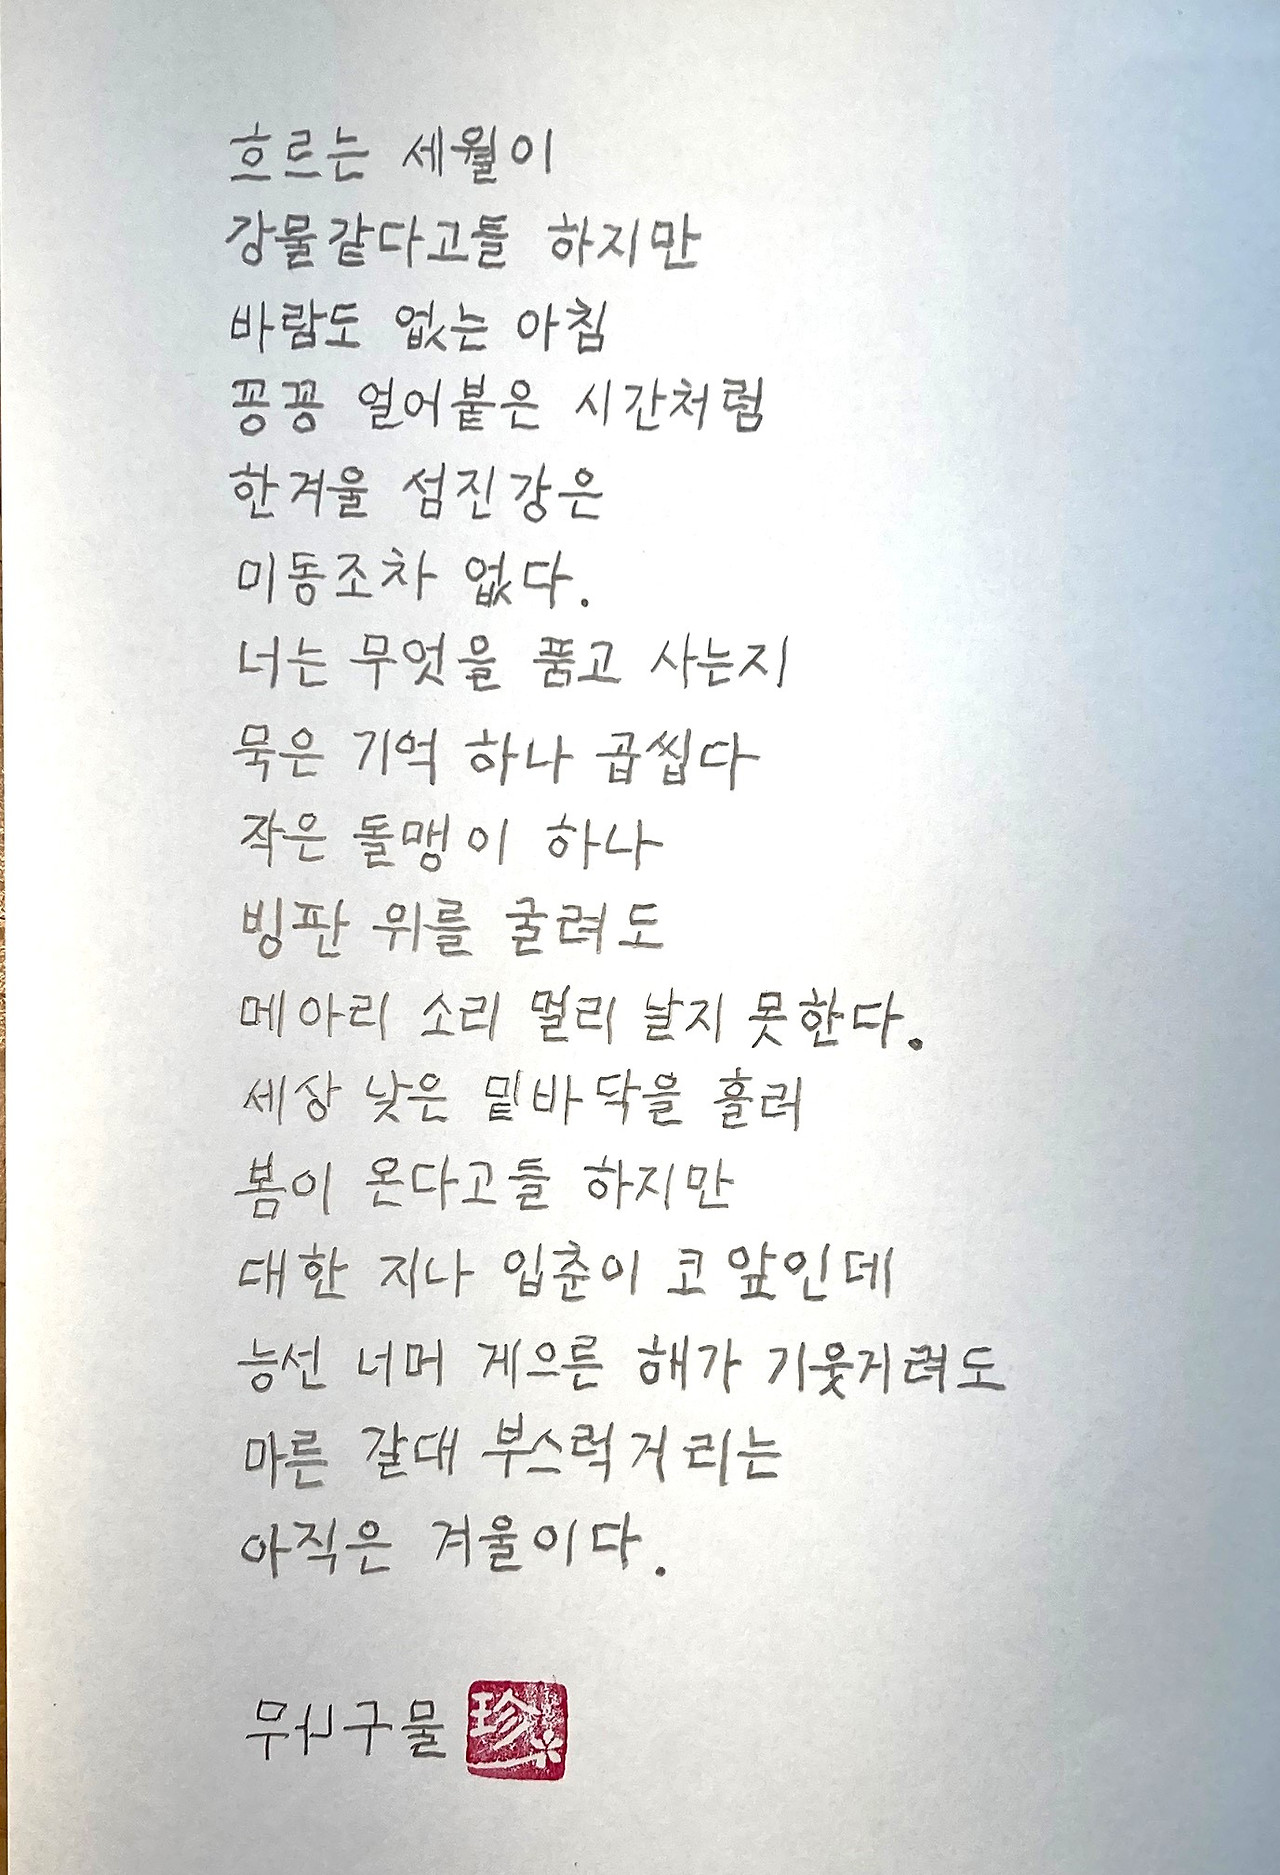 흐르는 세월이
강물같다고들 하지만
바람도 없는 아침
꽁꽁 얼어붙은 시간처럼
한겨울 섬진강은
미동조차 없다.
너는 무엇을 품고 사는지
묵은 기억 하나 곱씹다
작은 돌맹이 하나
빙판 위를 굴려도
메아리 소리 멀리 날지 못한다.
세상 낮은 밑바닥을 흘러
봄이 온다고들 하지만
대한 지나 입춘이 코 앞인데
능선 너머 게으른 해가 기웃거려도
마른 갈대 부스럭거리는
아직은 겨울이다.
구물
珍